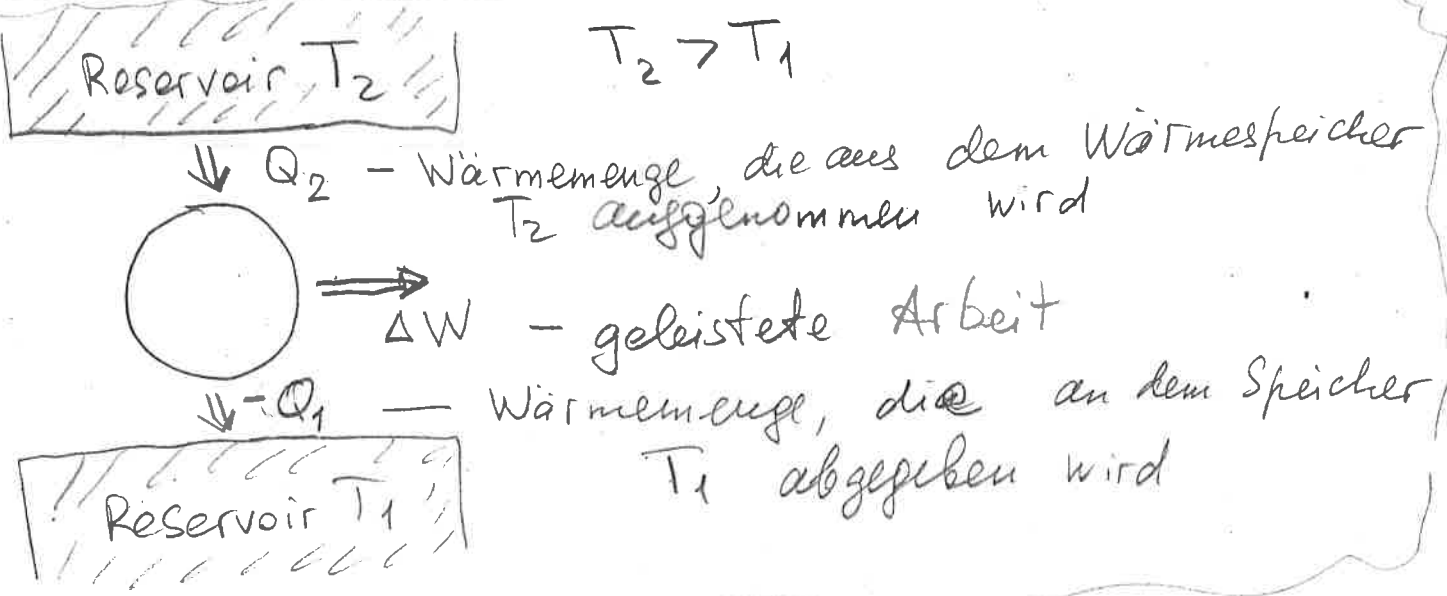 Reservoir T₂
T₂ > T₁
Q₂ – Wärmemenge, die aus dem Wärmespeicher
T₂ aufgenommen wird
ΔW – geleistete Arbeit
-Q₁ — Wärmemenge, die an dem Speicher
T₁ abgegeben wird
Reservoir T₁